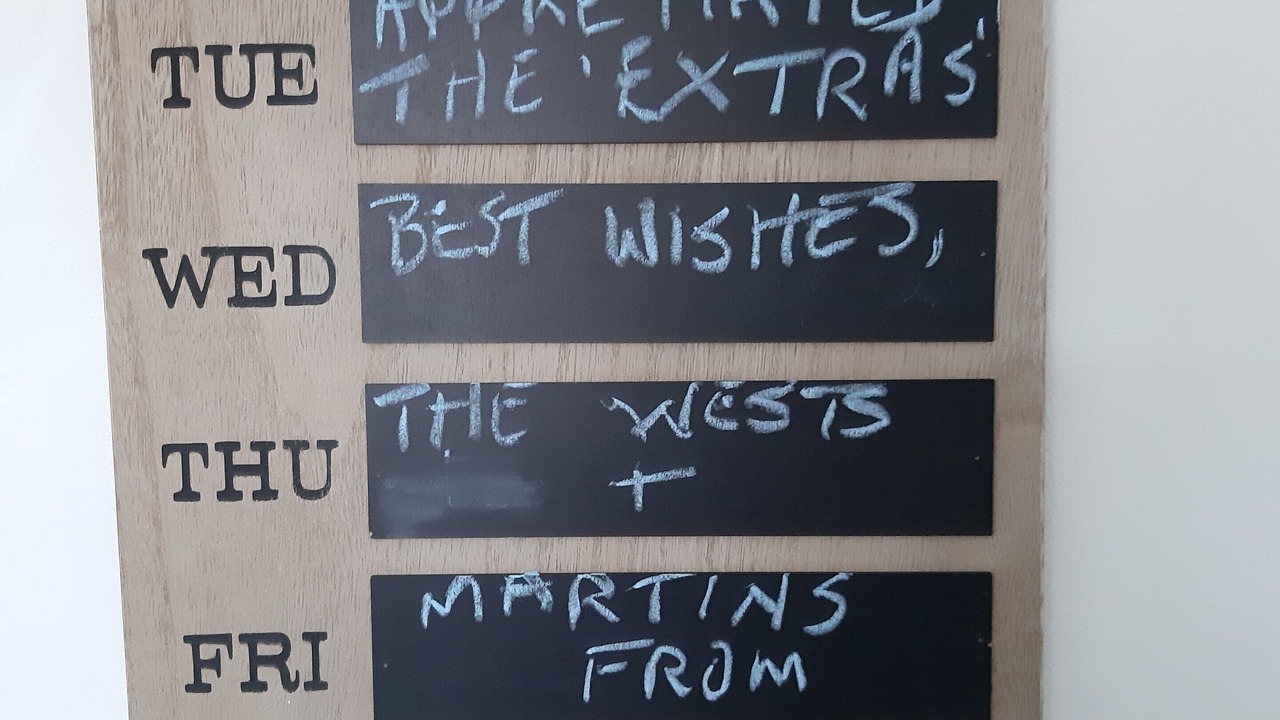 TUE
THE 'EXTRAS'
WED
BEST WISHES,
THU
THE WESTS
+
FRI
MARTINS
FROM